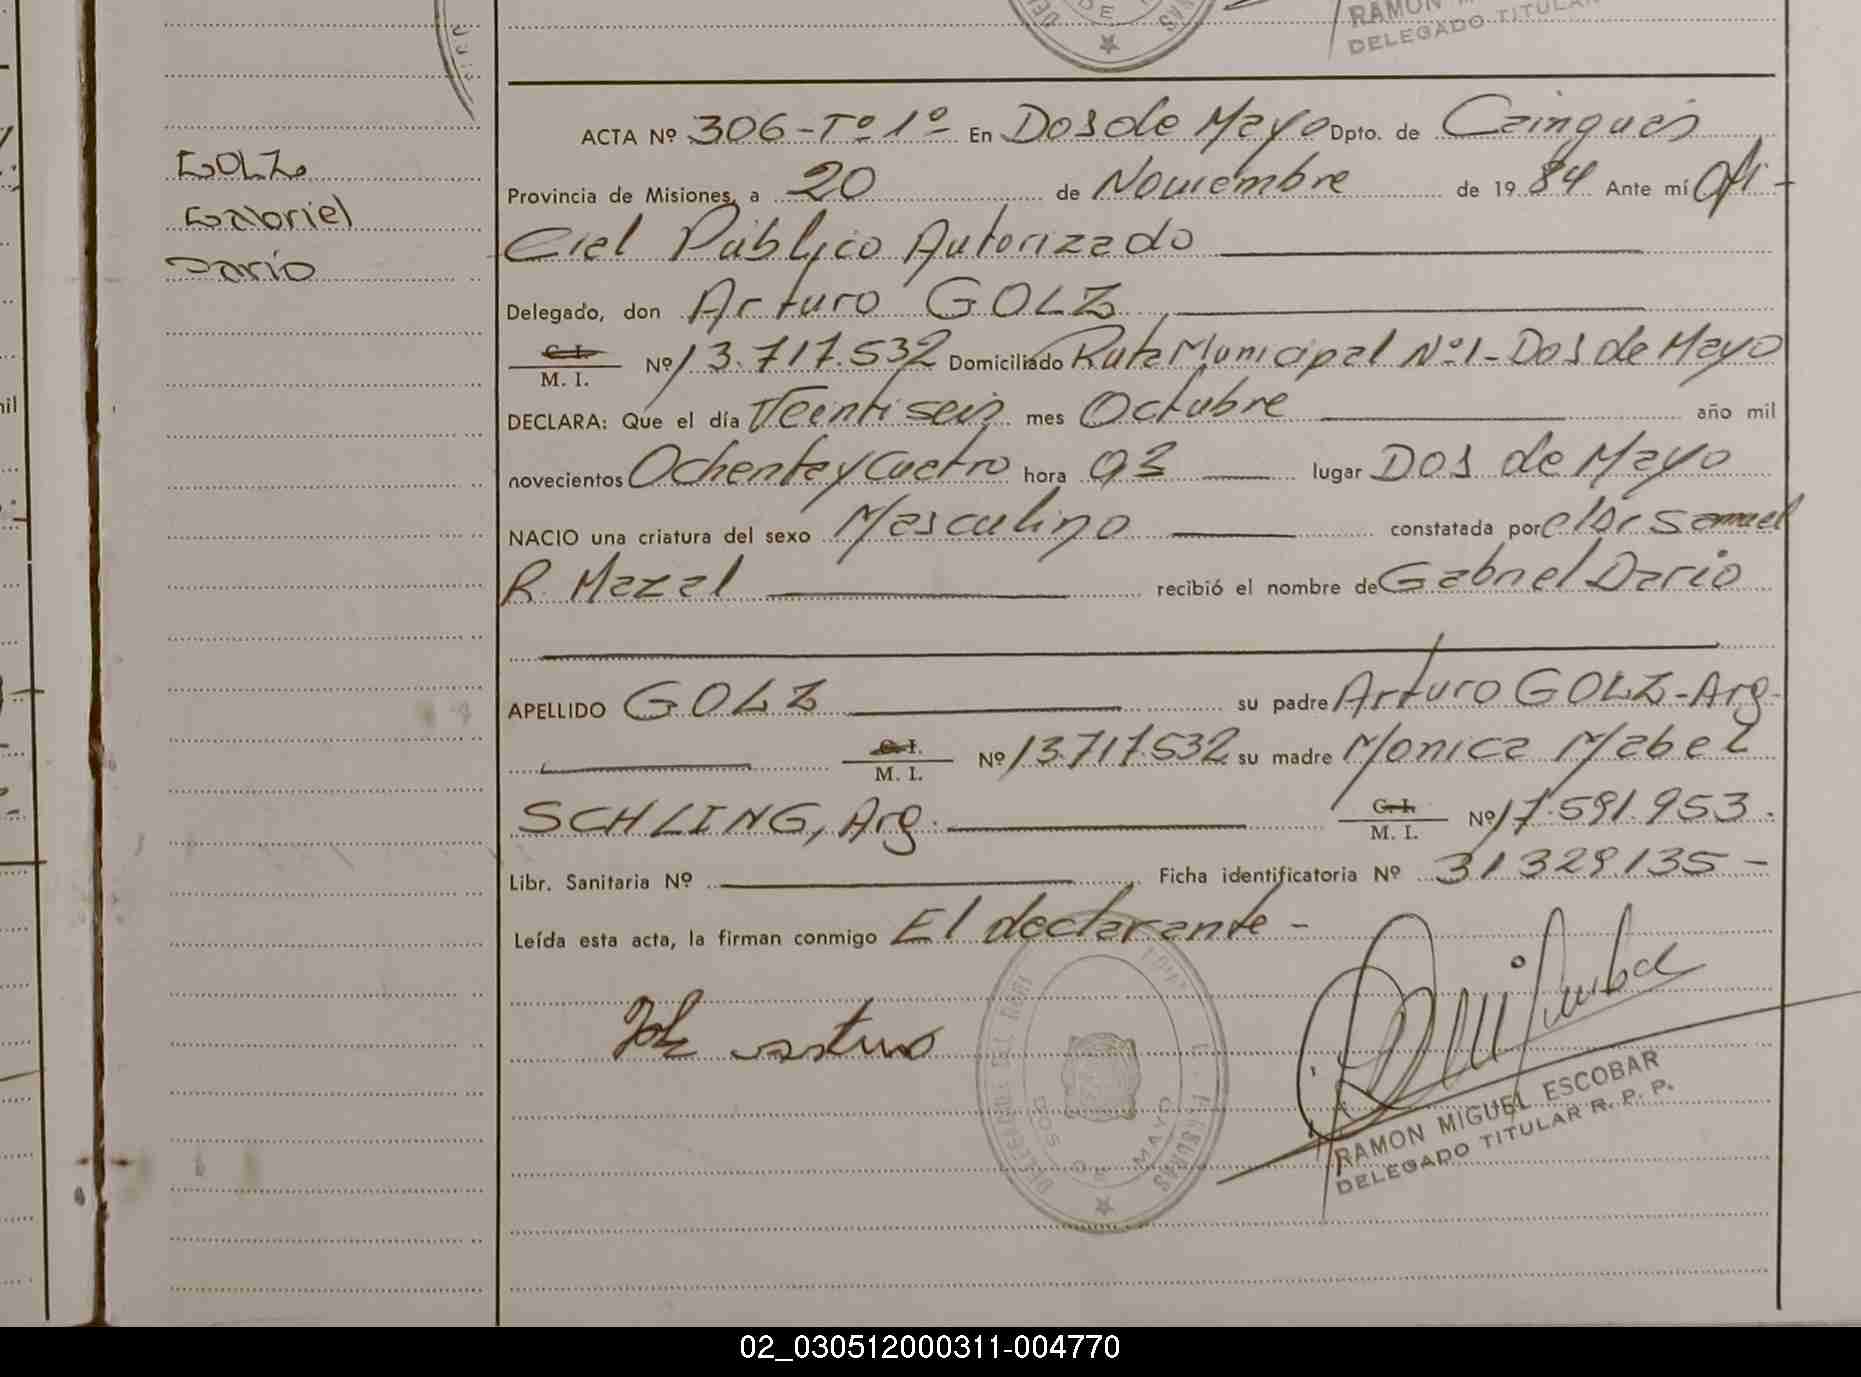 RAMON M
DELEGADO TITULAR
DE
ACTA Nº 306-Tº1º En Dos de Mayo Dpto. de Cainguás
GOLZ
Gabriel
Darío
Provincia de Misiones, a 20 de Noviembre de 1984 Ante mí Ofi-
cial Público Autorizado
Delegado, don Arturo GOLZ
C. I. M. I. Nº 13.717.532 Domiciliado Ruta Municipal Nº1-Dos de Mayo
DECLARA: Que el día Veintiseis mes Octubre año mil
novecientos Ochenta y Cuatro hora 03 lugar Dos de Mayo
NACIO una criatura del sexo Masculino constatada por el Dr Samuel
R. Mazal recibió el nombre de Gabriel Dario
APELLIDO GOLZ su padre Arturo GOLZ-Arg-
C. I. M. I. Nº 13.717.532 su madre Monica Mabel
SCHLING, Arg. C. I. M. I. Nº 17.591.953.
Libr. Sanitaria Nº Ficha identificatoria Nº 31329135-
Leída esta acta, la firman conmigo El declarante-
Golz arturo
DOS DE MAYO
RAMON MIGUEL ESCOBAR
DELEGADO TITULAR R. P. P.
02_030512000311-004770